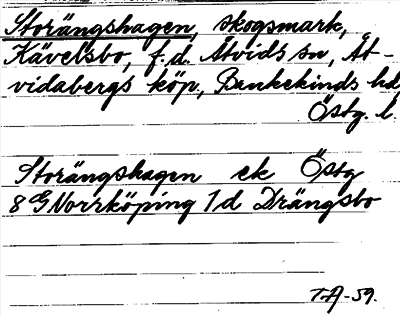 Storängshagen, skogsmark,
Kävelsbo, f.d. Åtvids sn, Åt-
vidabergs köp, Bankekinds hd
Östg. l.
Storängshagen ek Östg
8 G Norrköping 1d Drängsbo
T.A-59.